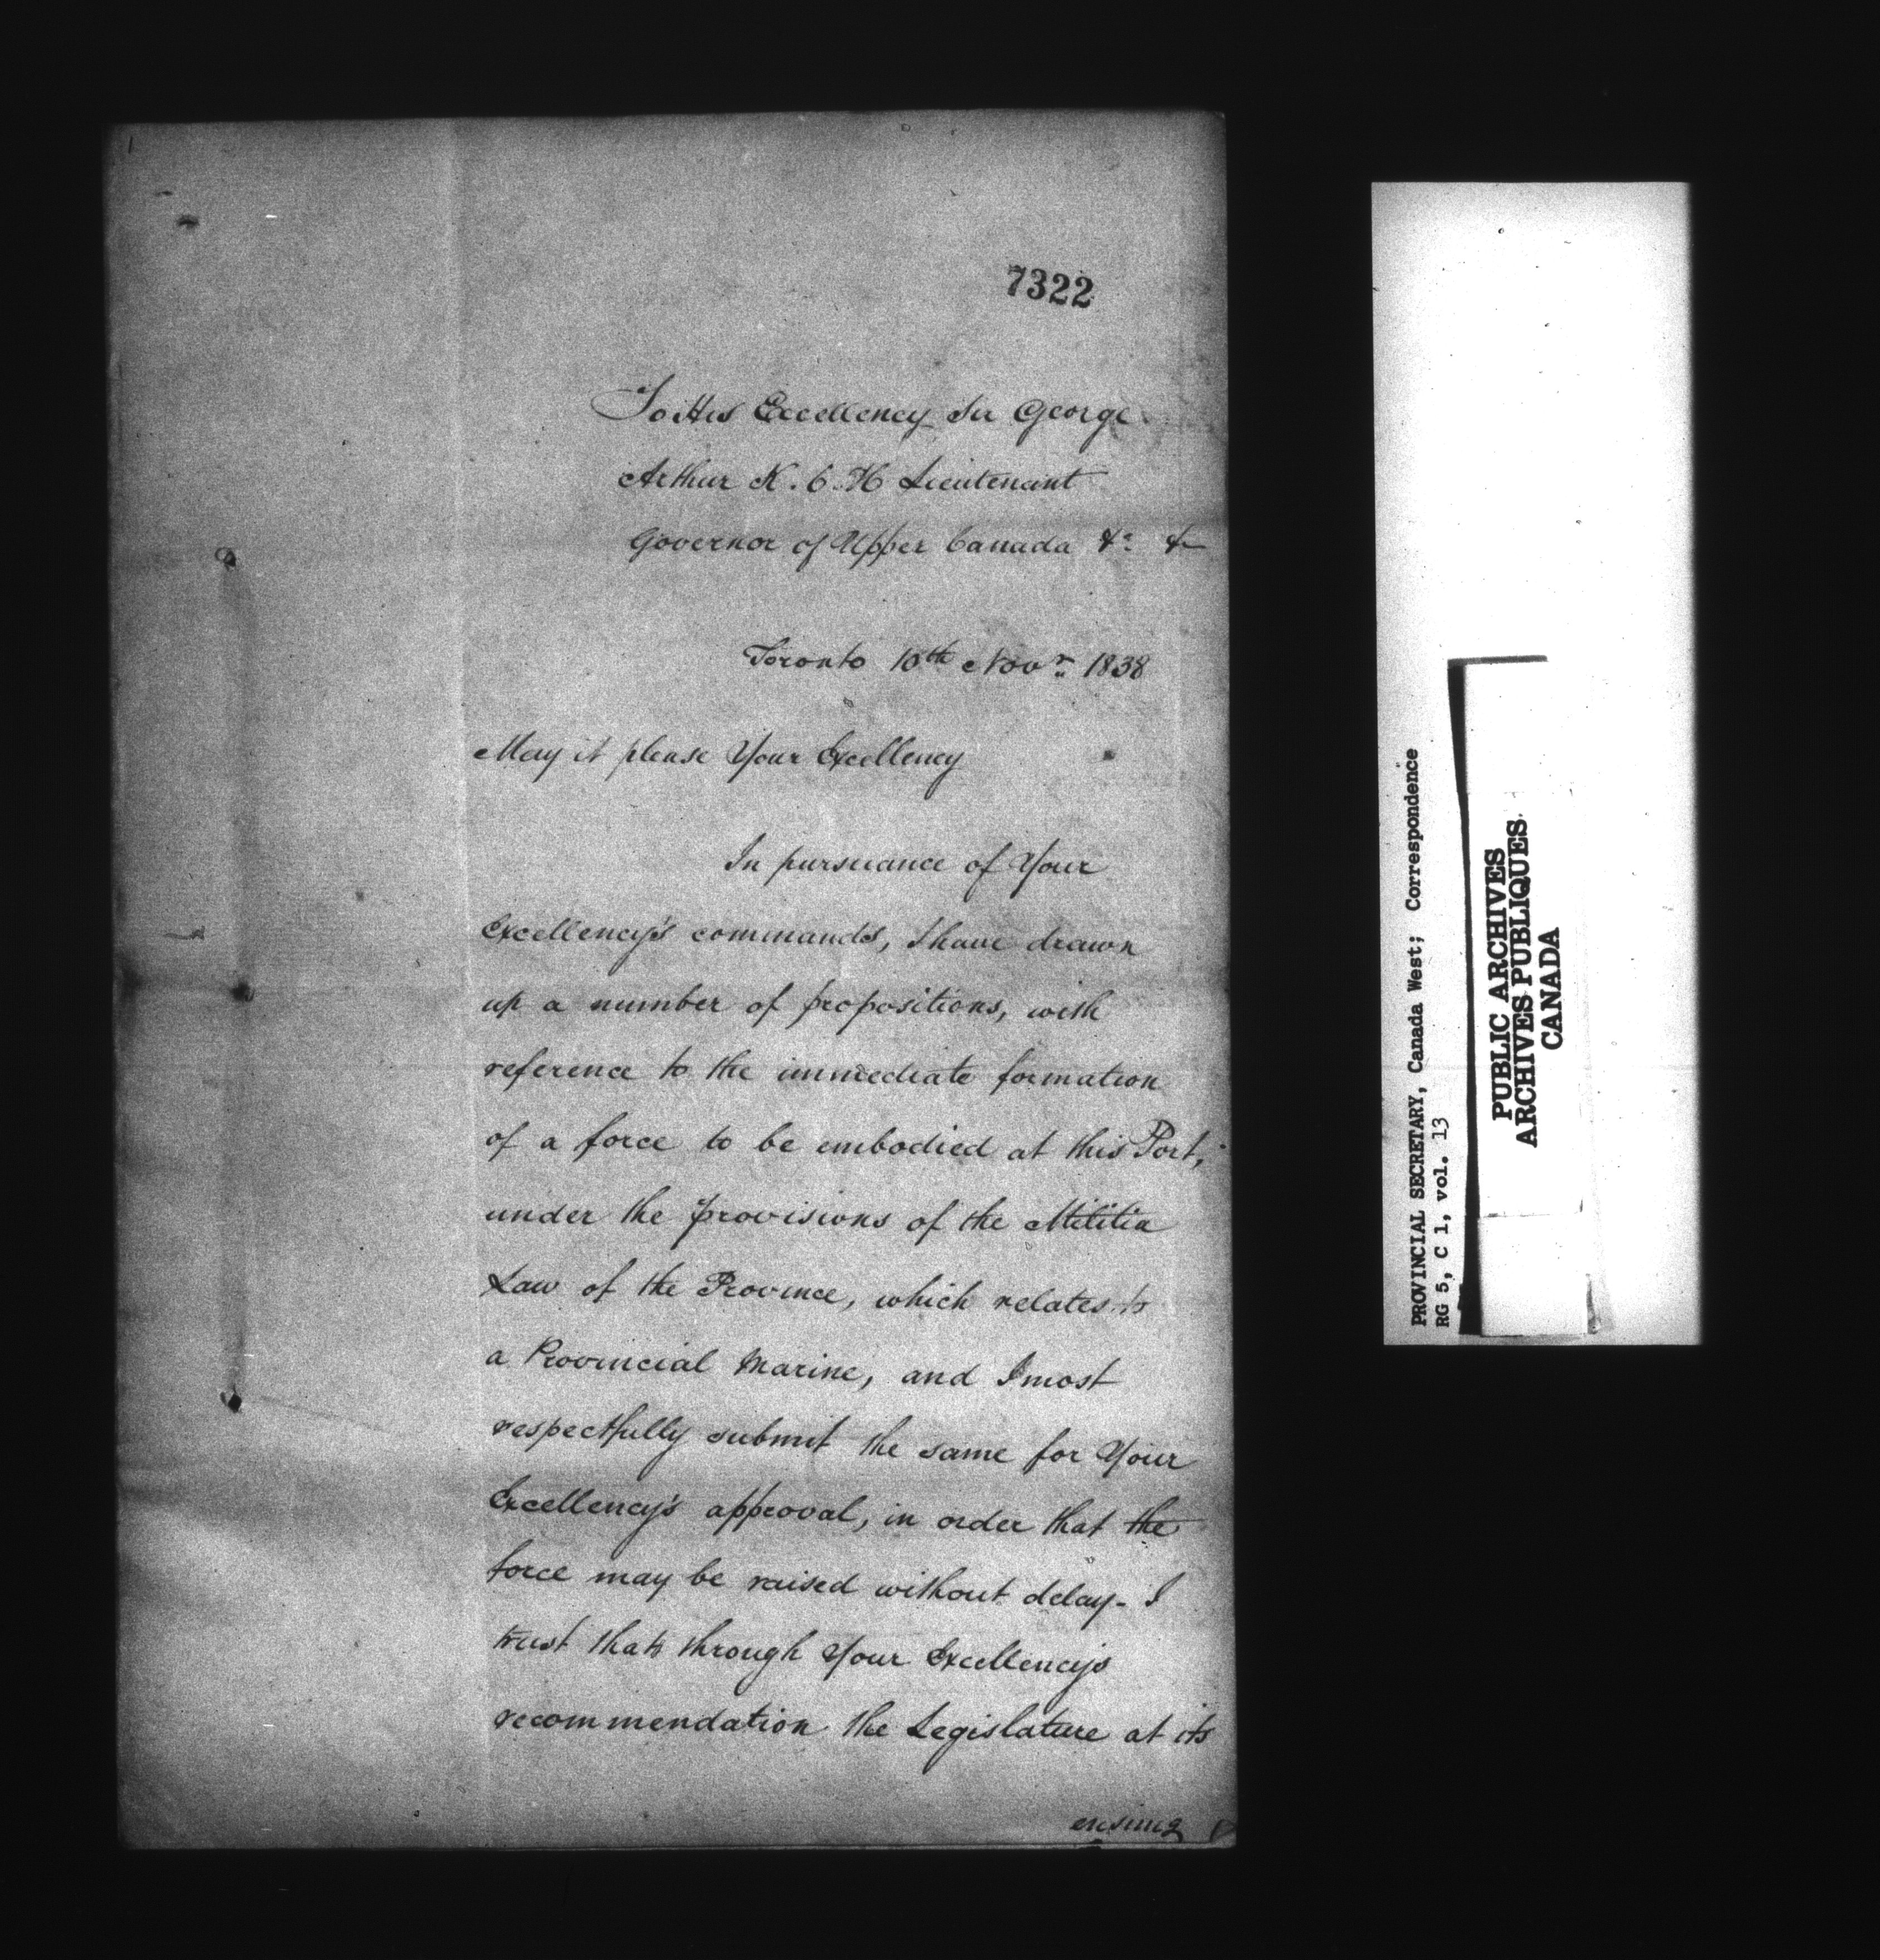 7322
To His Excellency Sir George
Arthur K. C. H Lieutenant
Governor of Upper Canada &c &c
Toronto 10th Novr 1838
May it please Your Excellency
In pursuance of Your
Excellency's commands, I have drawn
up a number of propositions, with
reference to the immediate formation
of a force to be embodied at this Port,
under the provisions of the Militia
Law of the Province, which relates to
a Provincial Marine, and I most
respectfully submit the same for Your
Excellency's approval, in order that the
force may be raised without delay - I
trust that through Your Excellency's
recommendation the Legislature at its
ensuing
PROVINCIAL SECRETARY, Canada West; Correspondence
RG 5, C 1, vol. 13
PUBLIC ARCHIVES
ARCHIVES PUBLIQUES
CANADA